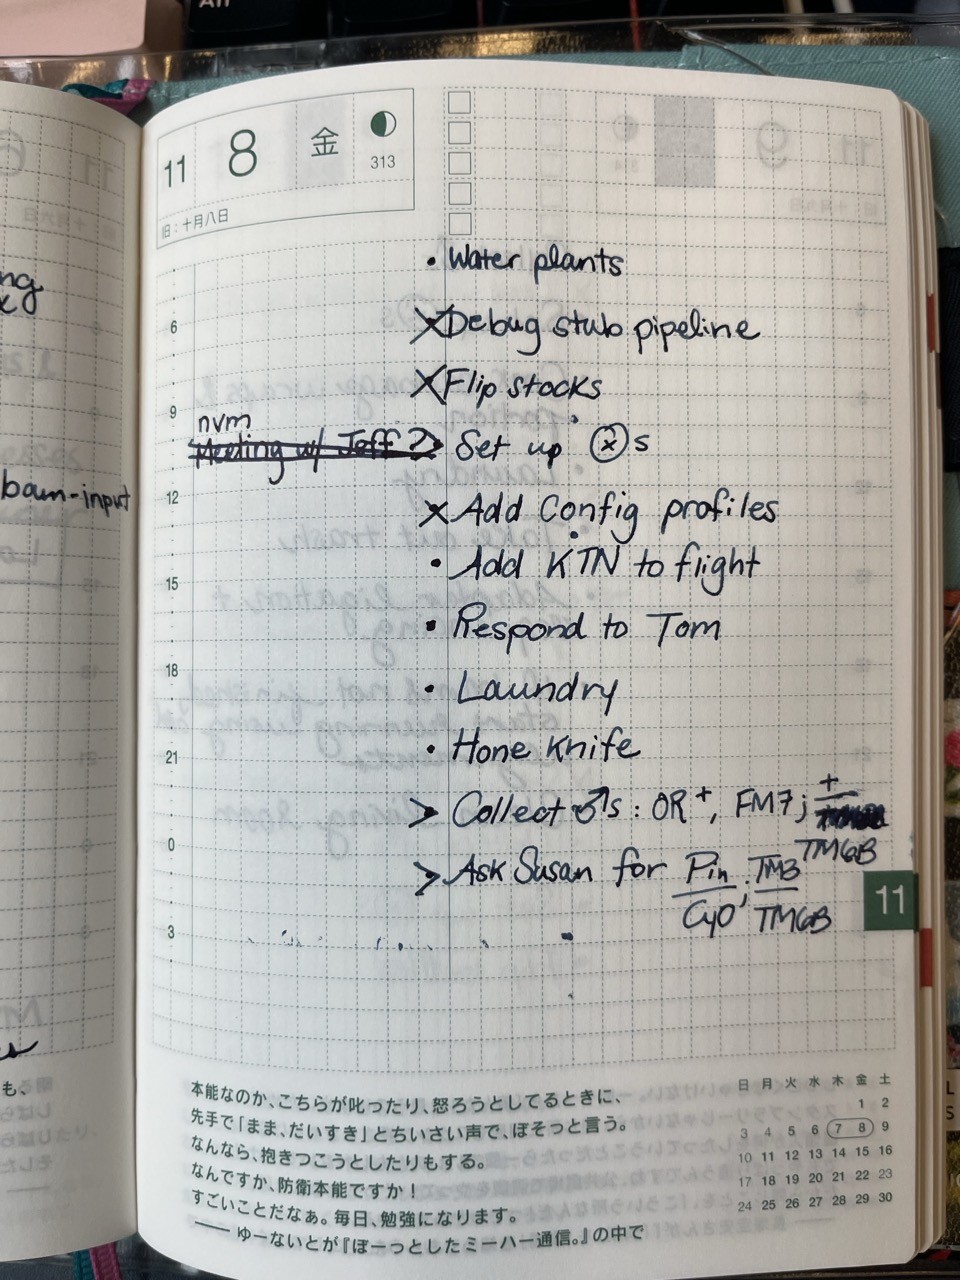 Alt
11 8 金
313
旧：十月八日
• Water plants
6
× Debug stub pipeline
× Flip stocks
9
nvm
Meeting w/ Jeff? > Set up ⓧs
12
× Add Config profiles
• Add KTN to flight
15
• Respond to Tom
18
• Laundry
21
• Hone knife
> Collect ♂s : OR⁺, FM7; +/TM6B
0
> Ask Susan for Pin/CyO ; TM3/TM6B
3
11
bam-input
本能なのか、こちらが叱ったり、怒ろうとしてるときに、
先手で「まま、だいすき」とちいさい声で、ぼそっと言う。
なんなら、抱きつこうとしたりもする。
なんですか、防衛本能ですか！
すごいことだなぁ。毎日、勉強になります。
── ゆーないとが『ぼーっとしたミーハー通信。』の中で
日 月 火 水 木 金 土
1 2
3 4 5 6 7 8 9
10 11 12 13 14 15 16
17 18 19 20 21 22 23
24 25 26 27 28 29 30